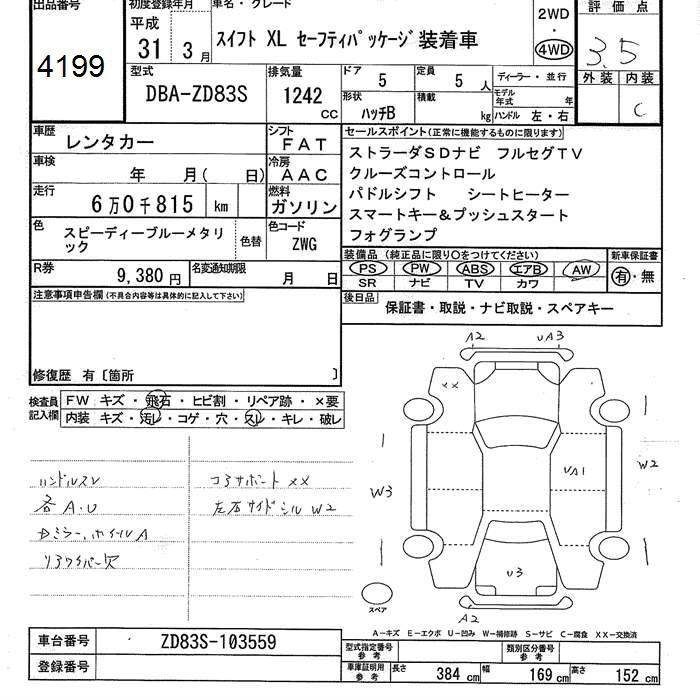 出品番号 初度登録年月 車名・グレード 評価点
4199 平成 31 3月 スイフト XL セーフティパッケージ装着車 2WD ・ 4WD 3.5
外装 内装
C
型式 排気量 ドア 5 定員 5 人 ディーラー・並行
DBA-ZD83S 1242 CC モデル年式 年
形状 ハッチB 積載 kg ハンドル 左・右
車歴 レンタカー シフト FAT
車検 年 月( 日) 冷房 AAC
走行 6万0千815 km 燃料 ガソリン
色 スピーディーブルーメタリック 色替 色コード ZWG
R券 9,380円 名変通知期限 月 日
セールスポイント(正常に機能するものに限ります)
ストラーダSDナビ フルセグTV
クルーズコントロール
パドルシフト シートヒーター
スマートキー&プッシュスタート
フォグランプ
装備品(純正品に限り○をつけてください) 新車保証書
PS PW ABS エアB AW 有・無
SR ナビ TV カワ
後日品 保証書・取説・ナビ取説・スペアキー
注意事項申告欄(不具合内容等は具体的に記入して下さい)
修復歴 有〔箇所 〕
検査員記入欄 FW キズ・飛石・ヒビ割・リペア跡・×要
内装 キズ・汚レ・コゲ・穴・スレ・キレ・破レ
ハンドルスレ
各A.U
ドアミラー、ホイルA
リアワイパー欠
コアサポートXX
左右サイドシルW2
A2 UA3
XX
W3 UA1 W2
U3
A2
スペア
A-キズ E-エクボ U-凹み W-補修跡 S-サビ C-腐食 XX-交換済
車台番号 ZD83S-103559
登録番号
型式指定番号 参考 類別区分番号 参考
車庫証明用 参考 長さ 384 cm 幅 169 cm 高さ 152 cm